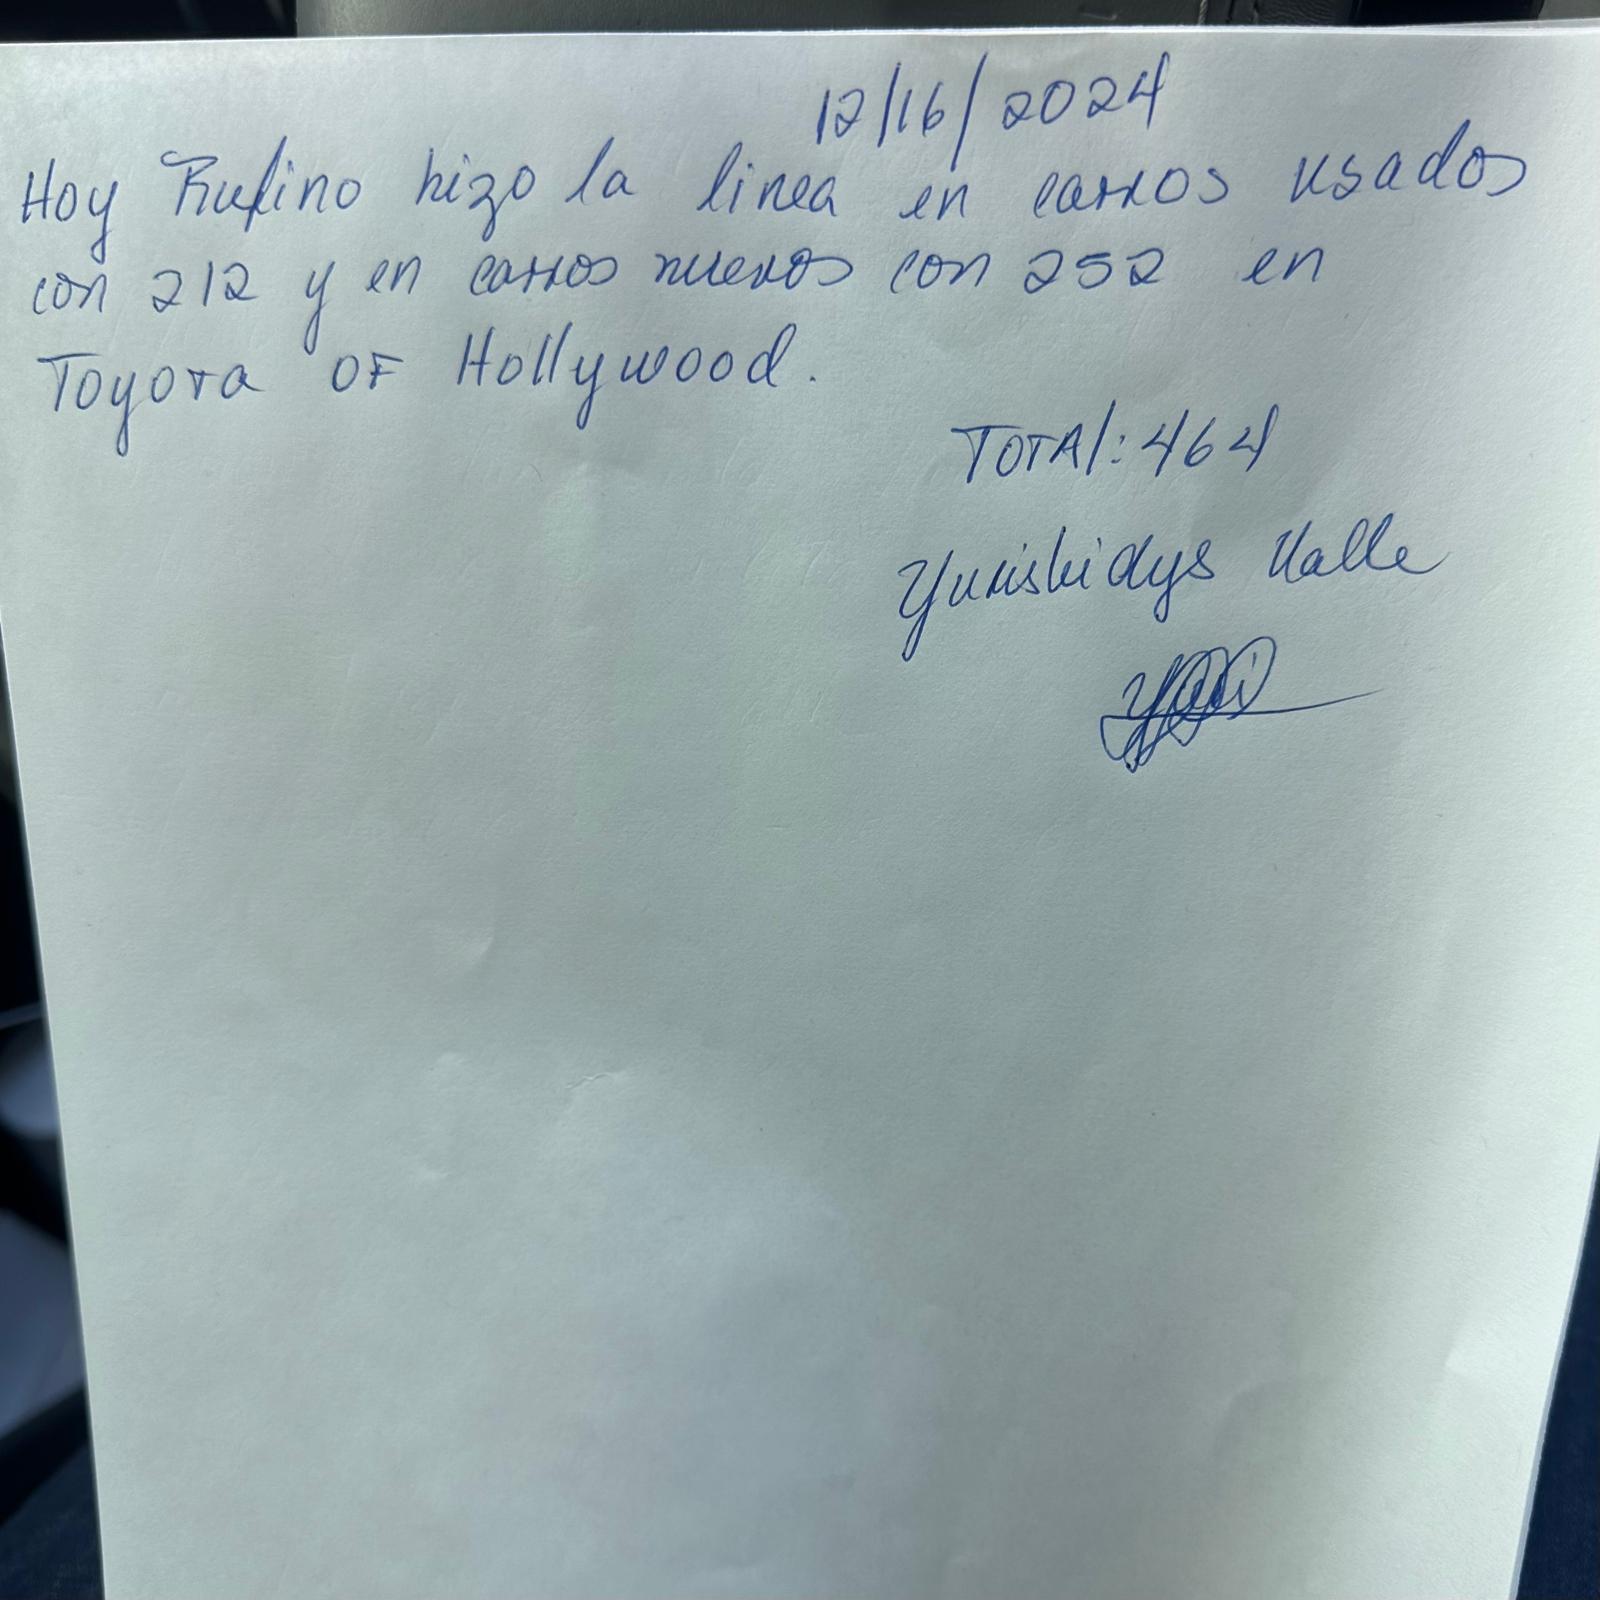 12/16/2024
Hoy Rufino hizo la linea en carros usados
con 212 y en carros nuevos con 252 en
Toyota OF Hollywood.
TOTAl: 464
Yuriskidys Valle